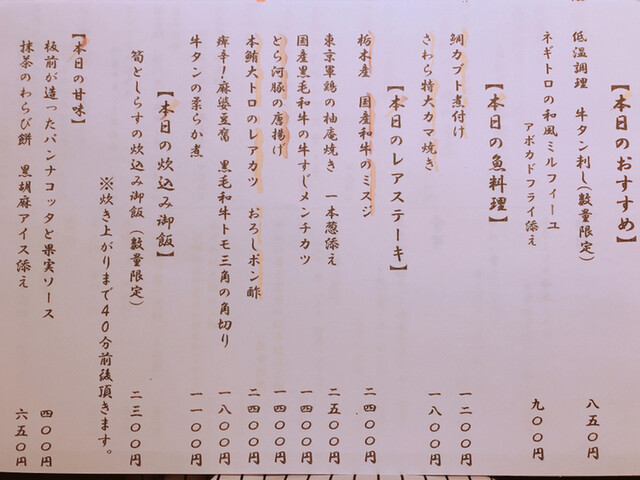 【本日のおすすめ】
低温調理　牛タン刺し（数量限定）　八五〇円
ネギトロの和風ミルフィーユ
アボカドフライ添え　九〇〇円
【本日の魚料理】
鯛カブト煮付け　一二〇〇円
さわら特大カマ焼き　一八〇〇円
【本日のレアステーキ】
栃木産　国産和牛のミスジ　二四〇〇円
東京軍鶏の柚庵焼き　一本葱添え　二五〇〇円
国産黒毛和牛の牛すじメンチカツ　一四〇〇円
とら河豚の唐揚げ　一四〇〇円
本鮪大トロのレアカツ　おろしポン酢　二四〇〇円
痺辛！麻婆豆腐　黒毛和牛トモ三角の角切り　一八〇〇円
牛タンの柔らか煮　一一〇〇円
【本日の炊込み御飯】
筍としらすの炊込み御飯（数量限定）　二三〇〇円
※炊き上がりまで４０分前後頂きます。
【本日の甘味】
板前が造ったパンナコッタと果実ソース　四〇〇円
抹茶のわらび餅　黒胡麻アイス添え　六五〇円